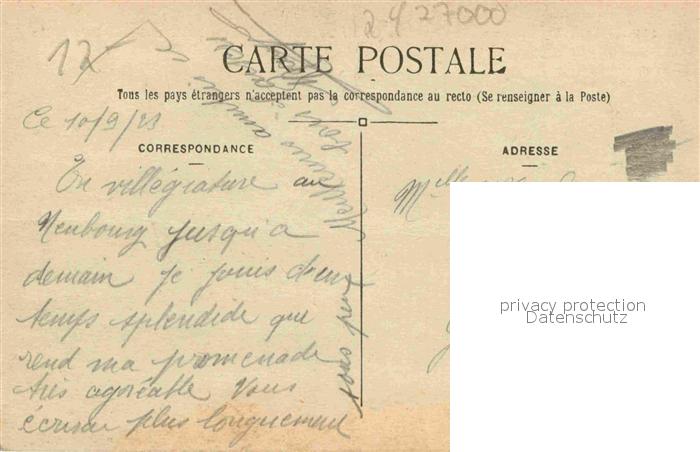 12 24 27000
CARTE POSTALE
Tous les pays étrangers n'acceptent pas la correspondance au recto (Se renseigner à la Poste)
Ce 10/9/23
CORRESPONDANCE
ADRESSE
En villégiature au
Neubourg jusqu'à
demain je jouis d'un
temps splendide qui
rend ma promenade
très agréable Vous
écrirai plus longuement
sous peu
Meilleures amitiés
Melle
privacy protection
Datenschutz